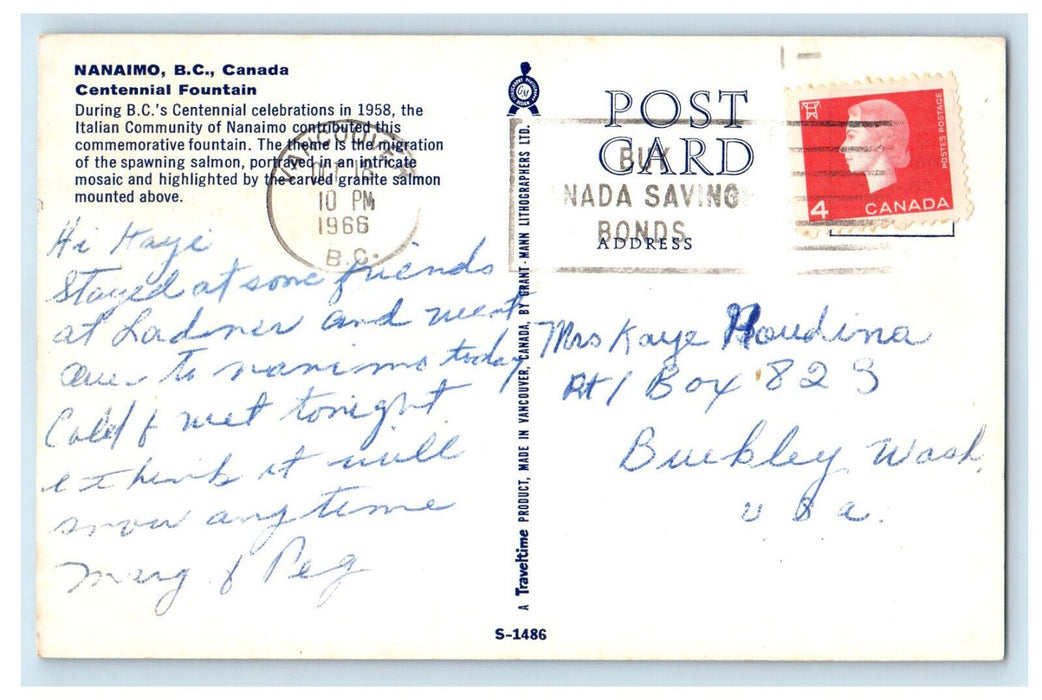 NANAIMO, B.C., Canada
Centennial Fountain
During B.C.'s Centennial celebrations in 1958, the
Italian Community of Nanaimo contributed this
commemorative fountain. The theme is the migration
of the spawning salmon, portrayed in an intricate
mosaic and highlighted by the carved granite salmon
mounted above.
Hi Kaye
Stayed at some friends
at Ladner and went
to nanimo today
Cold & wet tonight
think it will
snow anytime
Marg & Peg
VANCOUVER
OCT
10 PM
1966
B.C.
A Traveltime PRODUCT, MADE IN VANCOUVER, CANADA, BY GRANT-MANN LITHOGRAPHERS LTD.
S-1486
GM
POST
CARD
BUY
NADA SAVING
BONDS
ADDRESS
4 CANADA
POSTES POSTAGE
Mrs Kaye Houdina
Rt 1 Box 823
Buckley, Wash.
U S a.